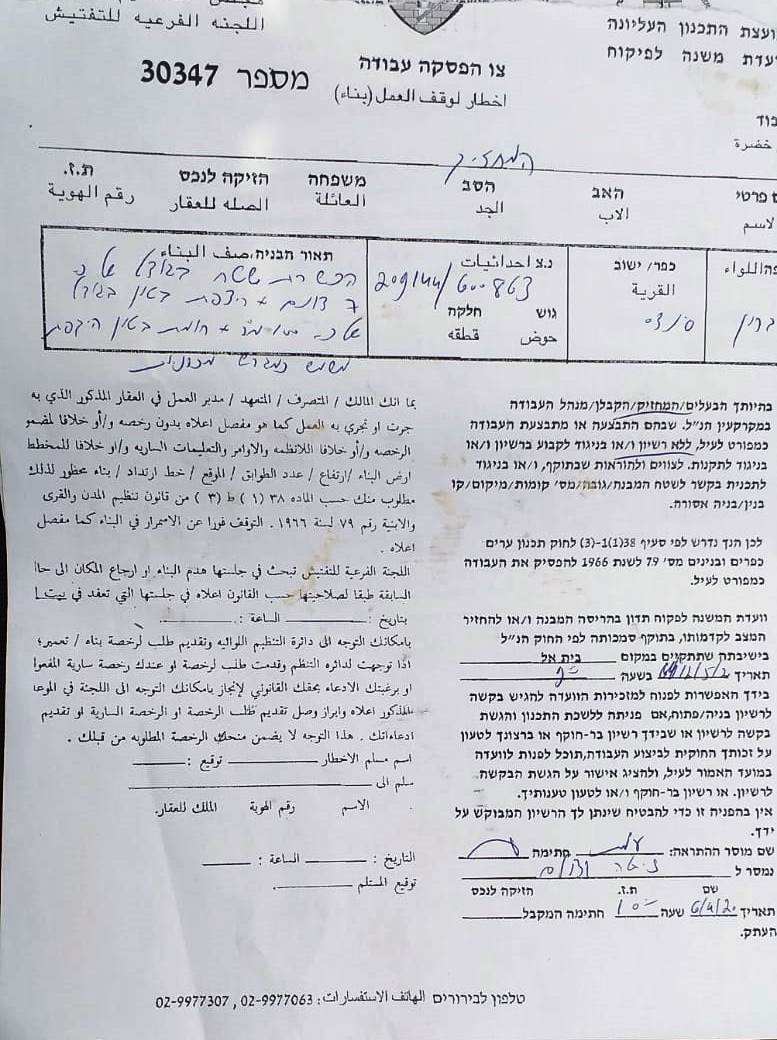 ועצת התכנון העליונה
עדת משנה לפיקוח
اللجنه الفرعيه للتفتيش
צו הפסקה עבודה
اخطار لوقف العمل (بناء)
מספר 30347
המחזיק
פרטי
الاسم
האב
الاب
הסב
الجد
משפחה
العائلة
הזיקה לנכס
الصله للعقار
ת.ז.
رقم الهوية
כפר/ ישוב
القرية
נ.צ احداثيات
209144/600863
גוש חלקה
حوض قطقه
תאור הבניה, صف البناء
הכשרת שטח בגודל של כ
7 דונם + רצפת בטון בגודל
משמש כמגרש מכוניות
בהיותך הבעלים/המחזיק/הקבלן/מנהל העבודה
במקרקעין הנ"ל. שבהם התבצעה או מתבצעת העבודה
כמפורט לעיל, ללא רשיון ו/או בניגוד לקבוע ברשיון ו/או
בניגוד לתקנות. לצווים ולהוראות שבתוקף, ו/או בניגוד
לתכנית בקשר לשטח המבנה/גובה/מס' קומות/מיקום/קו
בנין/בניה אסורה.
לכן הנך נדרש לפי סעיף 38(1)-(3) לחוק תכנון ערים
כפרים ובנינים מס' 79 לשנת 1966 להפסיק את העבודה
כמפורט לעיל.
וועדת המשנה לפקוח תדון בהריסה המבנה ו/או להחזיר
המצב לקדמותו, בתוקף סמכותה לפי החוק הנ"ל
בישיבתה שתתקיים במקום בית אל
תאריך בשעה
בידך האפשרות לפנוח למזכירות הוועדה להגיש בקשה
לרשיון בניה/פתוח, אם פניתה ללשכת התכנון והגשת
בקשה לרשיון או שבידך רשיון בר-חוקף או ברצונך לטעון
על זכותך החוקית לביצוע העבודה, תוכל לפנות לוועדה
במועד האמור לעיל, ולהציג אישור על הגשת הבקשה
לרשיון. או רשיון בר-חוקף ו/או לטעון טענותיך.
אין בהפניה זו כדי להבטיח שינתן לך הרשיון המבוקש על
ידך.
שם מוסר ההתראה: חתימה
נמסר ל
שם ת.ז. הזיקה לנכס
תאריך 6/4/20 שעה חתימה המקבל
העתק.
بما انك المالك / المتصرف / المتعهد / مدير العمل في العقار المذكور الذي به
جرت او تجري به العمل كما هو مفصل اعلاه بدون رخصه و/أو خلافا لمضمو
الرخصه و/أو خلافا للانظمه والاوامر والتعليمات الساريه و/او خلافا للمخطط
ارض البناء /ارتفاع / عدد الطوابق / الموقع / خط ارتداد / بناء محظور لذلك
مطلوب منك حسب الماده ٣٨ (١) ط (٣) من قانون تنظيم المدن والقرى
والابنية رقم ٧٩ لسنة ١٩٦٦ . التوقف فورا عن الاسمرار في البناء كما مفصل
اعلاه .
اللجنة الفرعية للتفتيش تبحث في جلستها هدم البناء او ارجاع المكان الى حا
السابقة طبقا لصلاحيتها حسب القانون اعلاه في جلستها التي تعقد في بيت
بتاريخ : الساعة :
بامكانك التوجه الى دائرة التنظيم اللوائيه وتقديم طلب لرخصة بناء / تعمير؛
اذا توجهت لدائره التنظم وقدمت طلب لرخصة او عندك رخصة سارية المفعو
او برغبتك الادعاء بحقك القانوني لإنجاز بامكانك التوجه الى اللجنة في الموعا
المذكور اعلاه وابراز وصل تقديم طلب الرخصة او الرخصة السارية او تقديم
ادعاءاتك . هذا التوجه لا يضمن منحك الرخصة المطلوبه من قبلك .
اسم مسلم الاخطار توقيع :
سلم الى
الاسم رقم الهوية الملك للعقار.
التاريخ : الساعة :
توقيع المستلم
טלפון לבירורים الهاتف الاستفسارات: 02-9977063 , 02-9977307